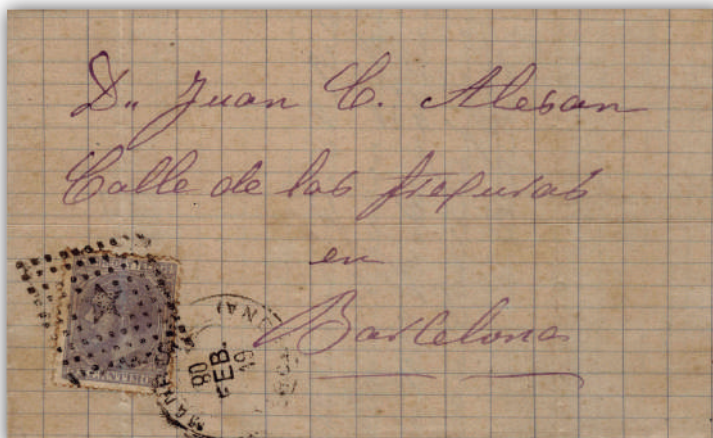 Dn. Juan C. Alesan
Calle de las
en
Barcelona
80
FEB.
19